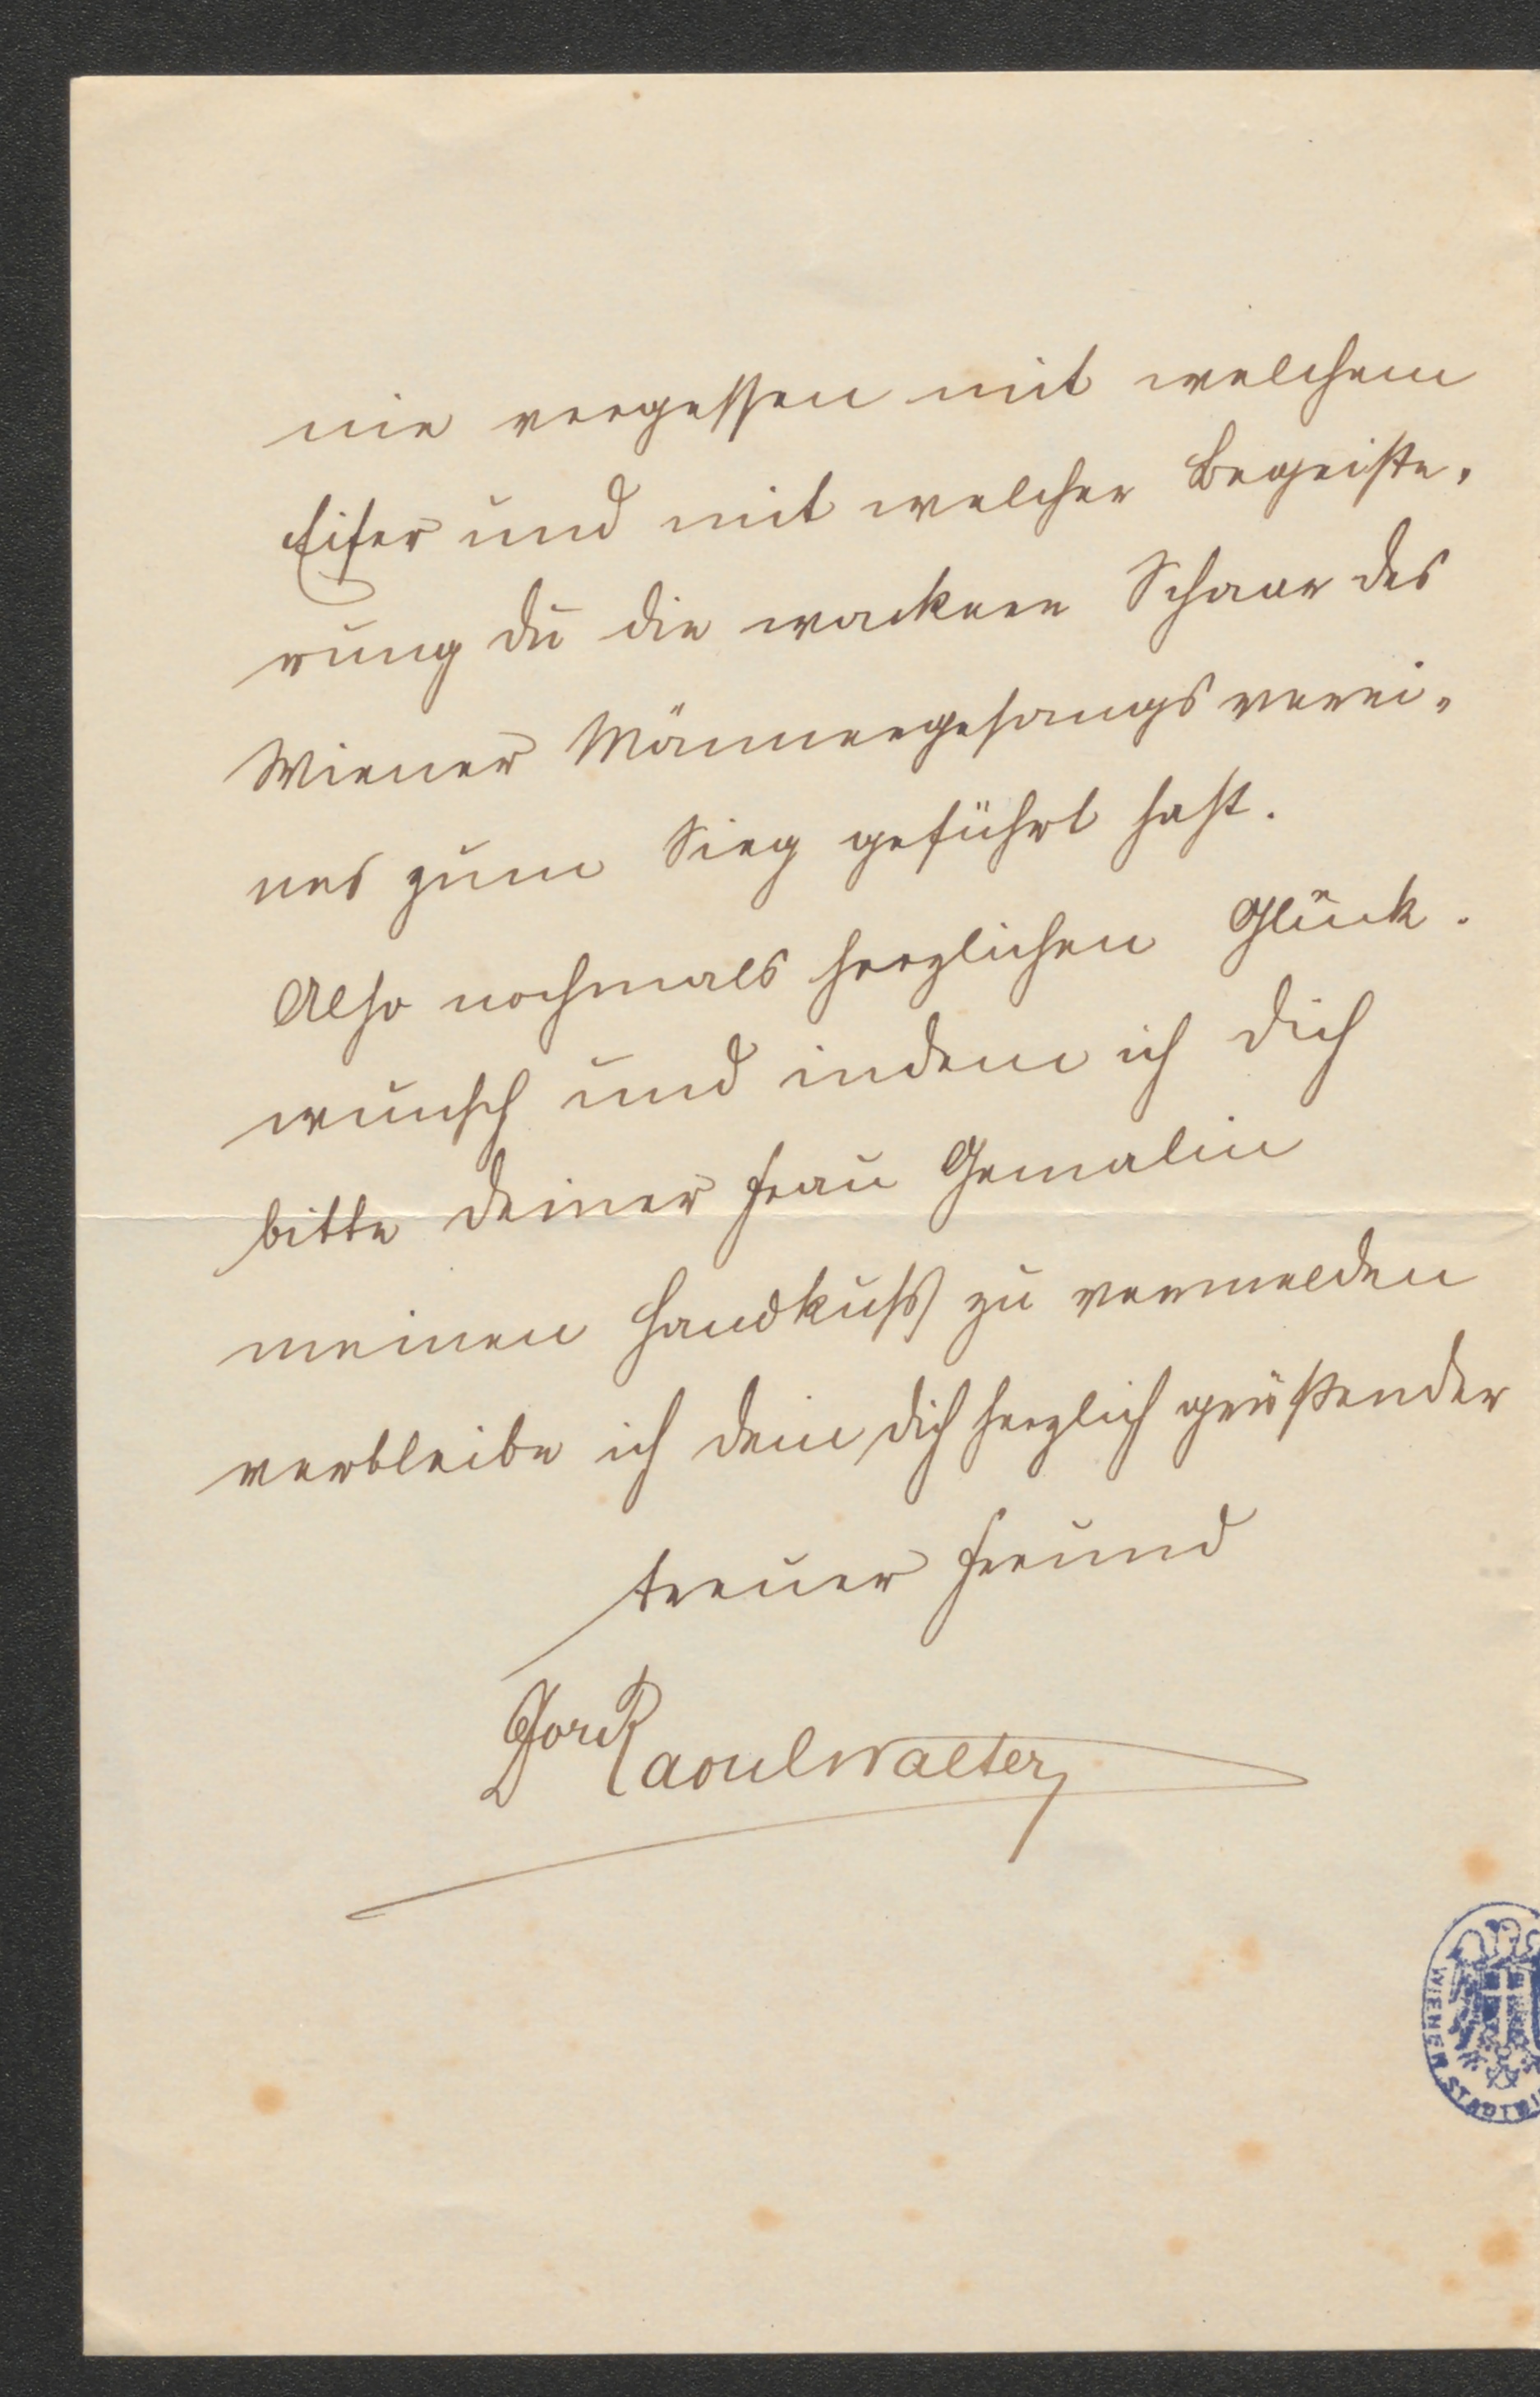 nie vergessen mit welchem
Eifer und mit welcher Begeiste-
rung du die wackere Schaar des
Wiener Männergesangsverei-
nes zum Sieg geführt hast.
Also nochmals herzlichen Glück-
wunsch und indem ich dich
bitte deiner Frau Gemalin
meinen Handkuss zu vermelden
verbleibe ich dein dich herzlich grüßender
treuer Freund
Raoul Walter
WIENER STADTBI